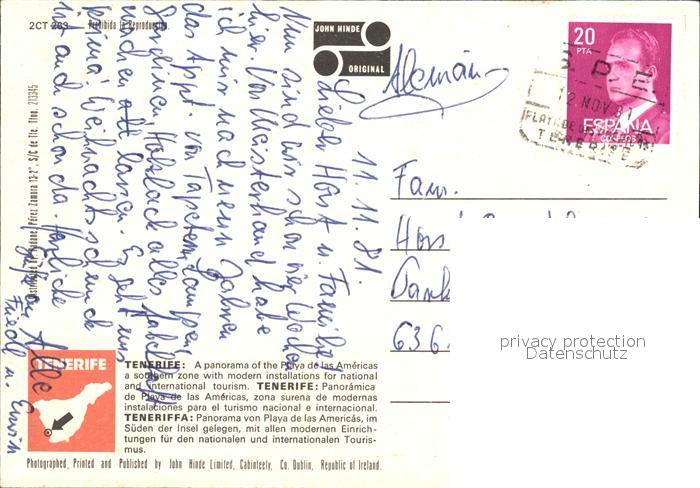 2CT 263
Prohibida la Reproducción
JOHN HINDE
ORIGINAL
20
PTA
ESPAÑA
CORREOS
12 NOV 81
TENERIFE
Alemán
11.11.81.
Lieber Horst u. Familie!
Nun sind wir schon vier Wochen
hier. Von Meisterhand habe
ich mir nach neun Jahren
das Appt. von Tapeten, Lampen,
Gardinen Holzlack alles
machen lassen. Es geht uns
prima. Weihnachtsschmuck
ist auch schon da. Herzliche
Grüße an Alle
Friedl u. Erwin
Fam.
Hors
636
privacy protection
Datenschutz
Pérez Zamora 13-2°, S/C de Tfe. Tfno. 213345
TENERIFE
TENERIFE: A panorama of the Playa de las Américas
a southern zone with modern installations for national
and international tourism. TENERIFE: Panorámica
de Playa de las Américas, zona surena de modernas
instalaciones para el turismo nacional e internacional.
TENERIFFA: Panorama von Playa de las Americás, im
Süden der Insel gelegen, mit allen modernen Einrich-
tungen für den nationalen und internationalen Touris-
mus.
Photographed, Printed and Published by John Hinde Limited, Cabinteely, Co. Dublin, Republic of Ireland.